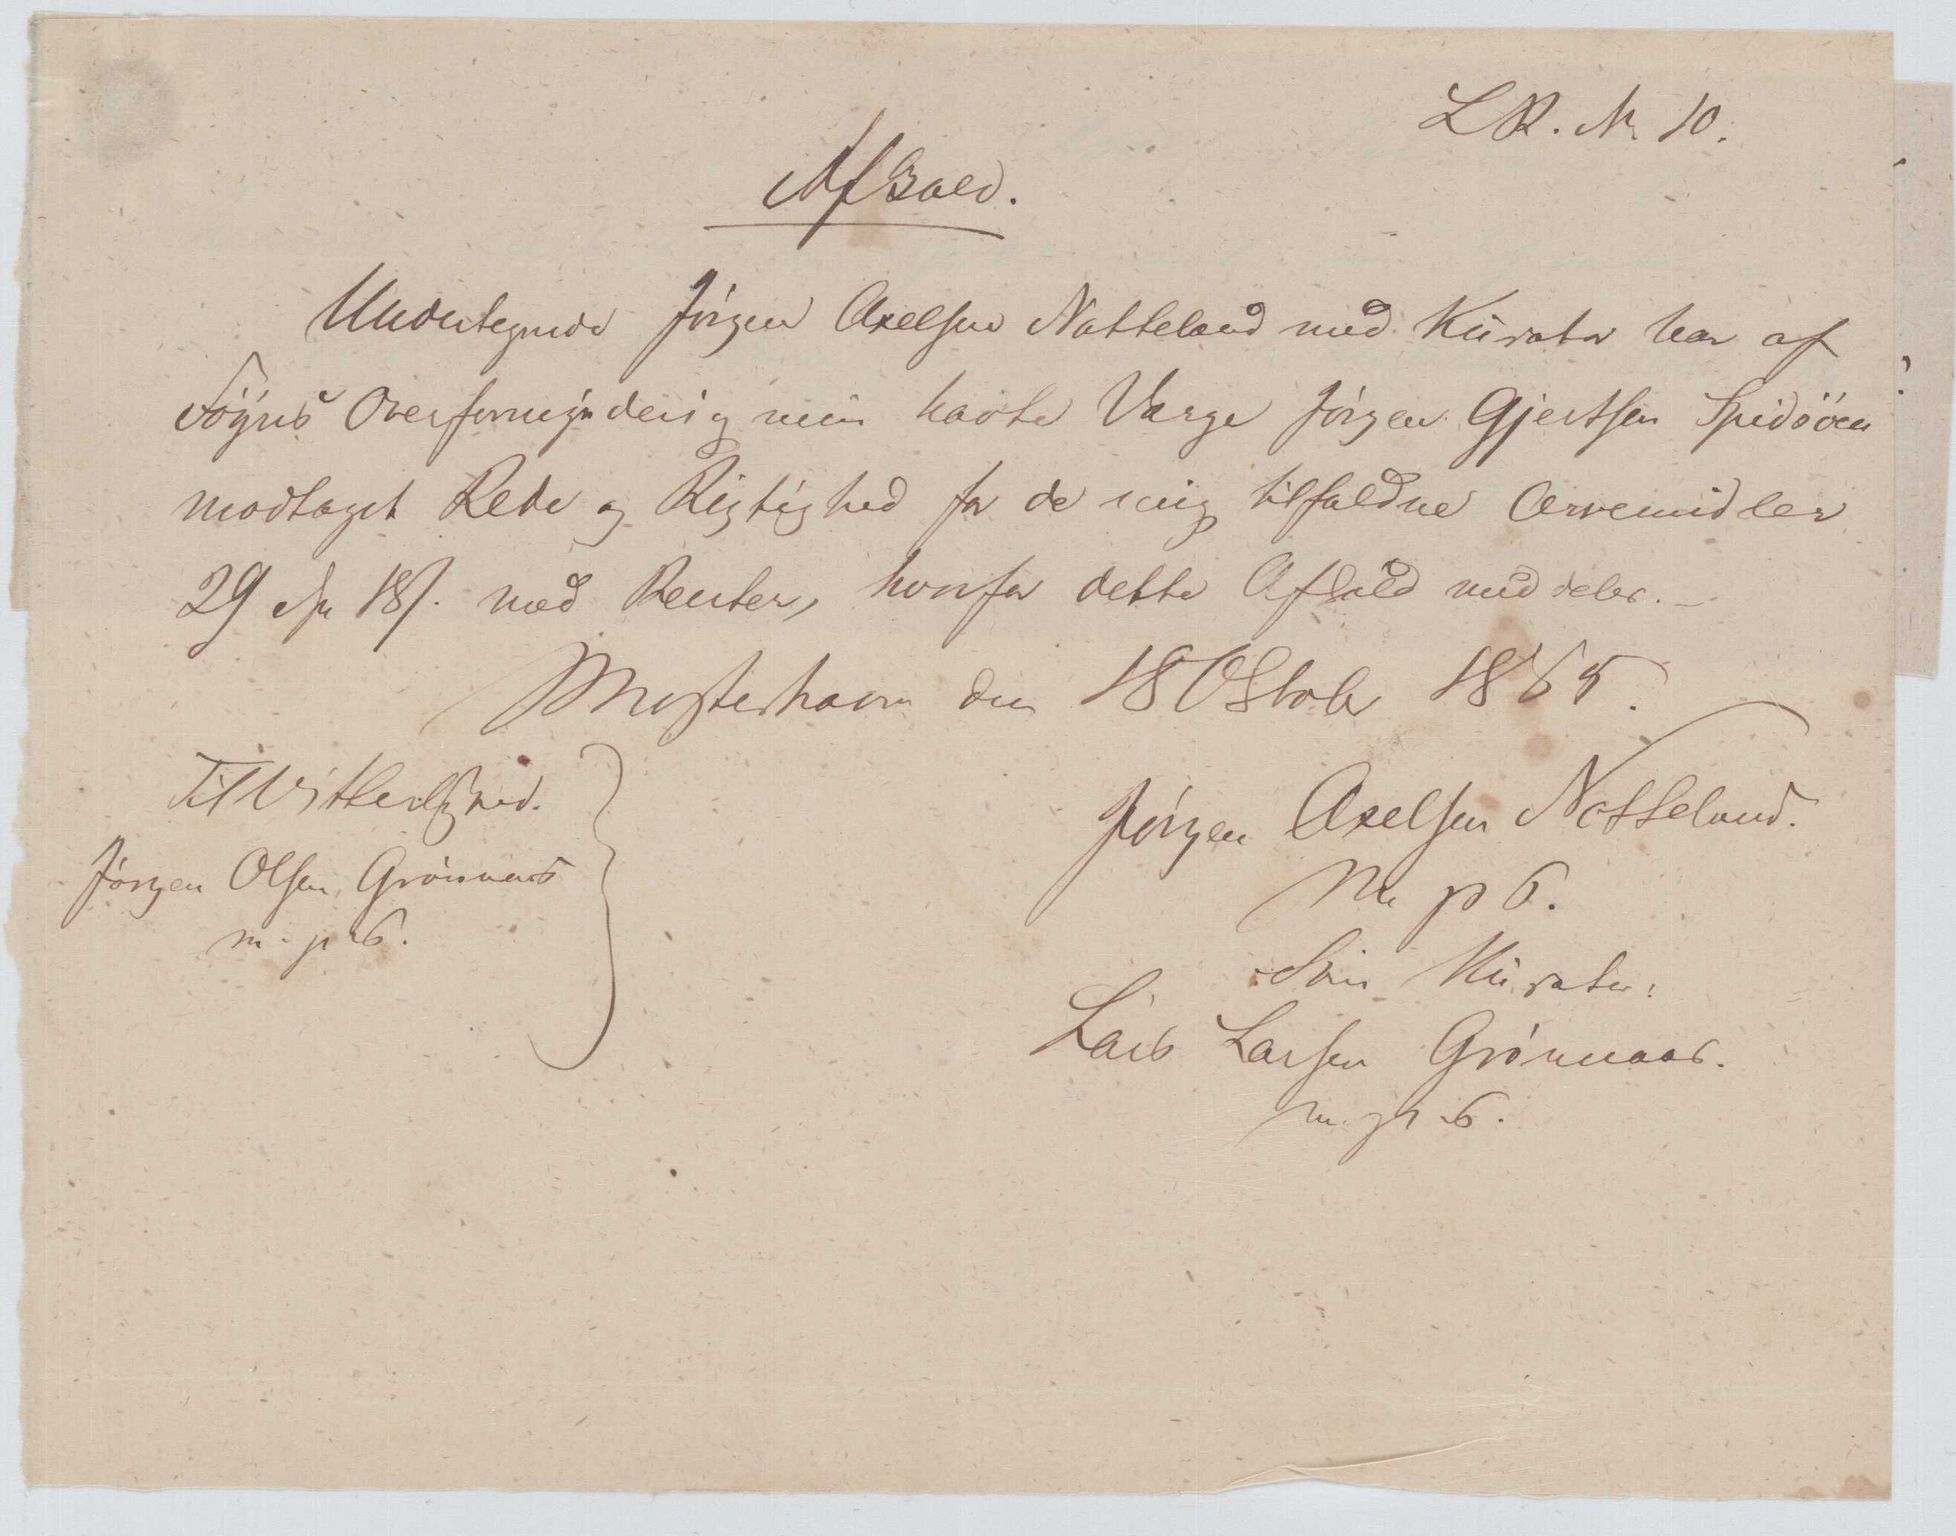 L R. No 10.
Afkald.
Undertegnede Jörgen Axelsen Natteland med Kurator har af
Föÿns Overformÿnderi og min havte Værge Jörgen Gjertsen Spidsöen
modtaget Rede og Rigtighed for de mig tilfaldne Arvemidler
29 Sp 18 s. med Renter, hvorfor dette Afkald meddeles. –
Mosterhavn den 18 Oktober 1865.
Til Vitterlighed.
Jörgen Olsen Grönnaas
m. p. P.
Jörgen Axelsen Natteland.
m p P.
Som Kurator:
Lars Larsen Grönnaas.
m. p. P.